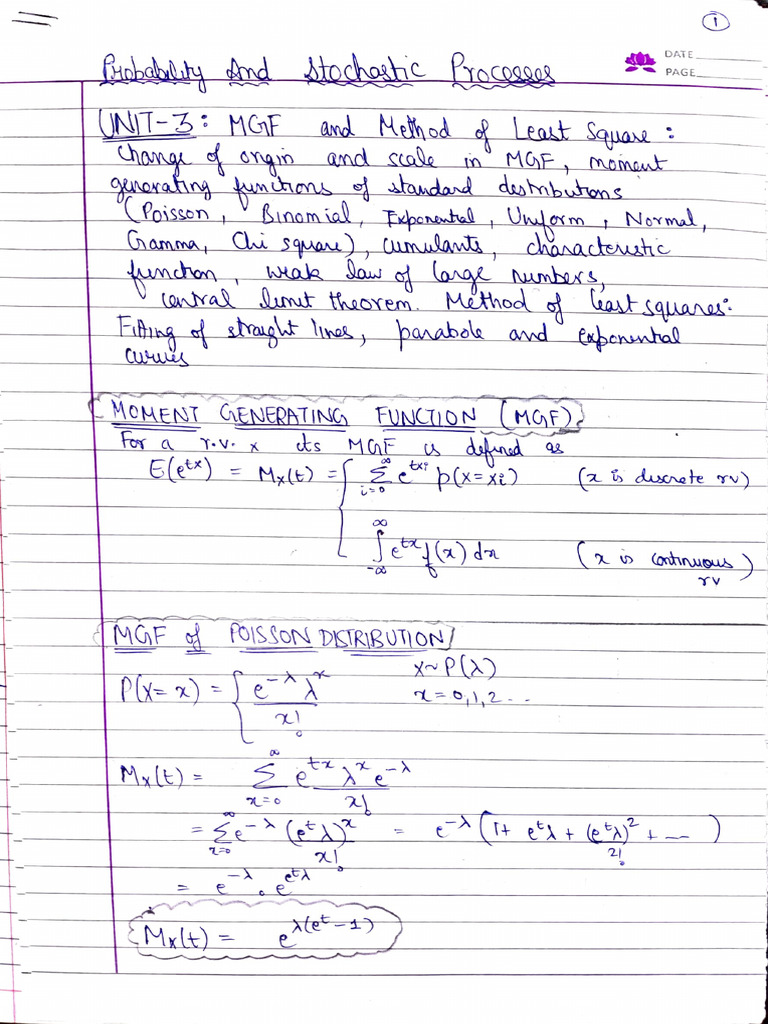 1
Probability And Stochastic Processes
DATE
PAGE
UNIT-3: MGF and Method of Least Square:
Change of origin and scale in MGF, moment
generating functions of standard distributions
(Poisson, Binomial, Exponential, Uniform, Normal,
Gamma, Chi square), cumulants, characteristic
function, weak law of large numbers,
central limit theorem. Method of least squares:
Fitting of straight lines, parabola and exponential
curves
MOMENT GENERATING FUNCTION (MGF)
For a r.v. x its MGF is defined as
E(e^{tx}) = M_x(t) = { ∑_{i=0}^{∞} e^{txi} p(x=xi) (x is discrete rv)
∫_{-∞}^{∞} e^{tx} f(x) dx (x is continuous rv)
MGF of POISSON DISTRIBUTION
X~P(λ)
P(X=x) = { e^{-λ} λ^x / x! x=0,1,2...
M_x(t) = ∑_{x=0}^{∞} e^{tx} λ^x e^{-λ} / x!
= ∑_{x=0}^{∞} e^{-λ} (e^t λ)^x / x! = e^{-λ} (1+ e^t λ + (e^t λ)^2 / 2! + ....)
= e^{-λ} . e^{e^t λ}
M_x(t) = e^{λ(e^t - 1)}